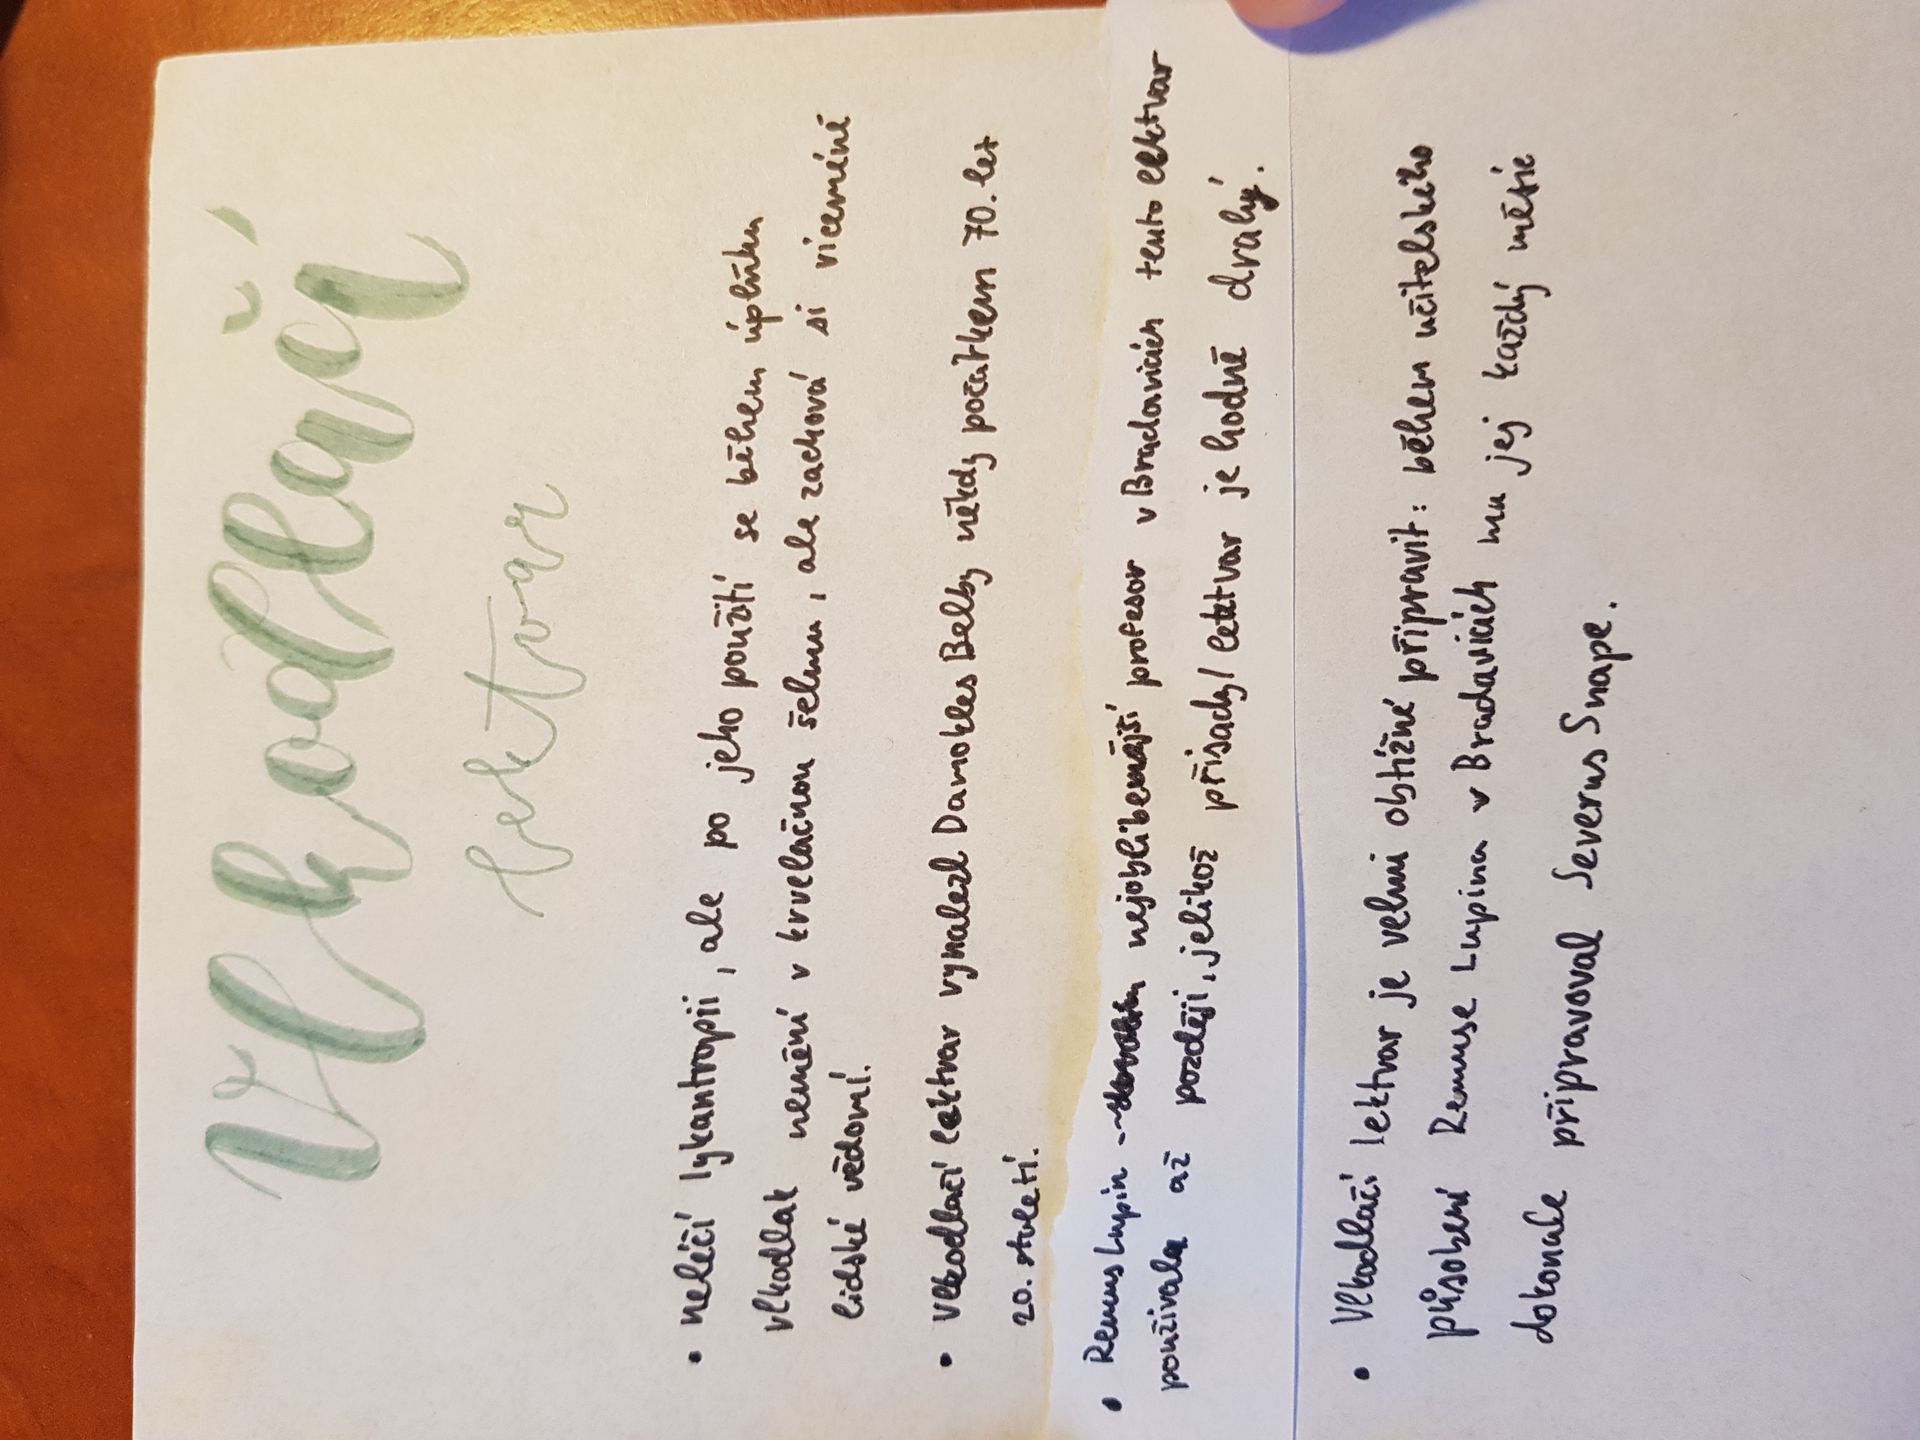 Vlkodlačí
lektvar
• neléčí lykantropii, ale po jeho použití se během úplňku
vlkodlak nemění v krvelačnou šelmu, ale zachová si víceméně
lidské vědomí.
• Vlkodlačí lektvar vynalezl Damokles Belby někdy počátkem 70. let
20. století.
• Remus Lupin - nejoblíbenější profesor v Bradavicích tento lektvar
používala až později, jelikož přísady/lektvar je hodně drahý.
• Vlkodlačí lektvar je velmi obtížné připravit: během učitelského
působení Remuse Lupina v Bradavicích mu jej každý měsíc
dokonale připravoval Severus Snape.